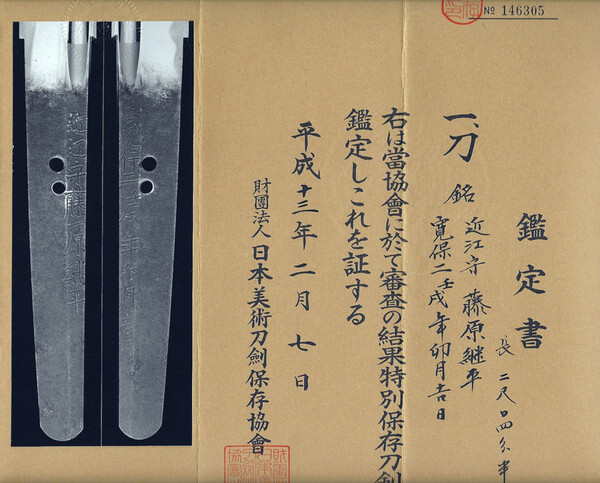 № 146305
鑑定書
長 二尺 四分半
一、刀 銘 近江守藤原継平
寛保二壬戌年卯月吉日
右は當協會に於て審査の結果特別保存刀劍
鑑定しこれを証する
平成十三年二月七日
財團法人 日本美術刀劍保存協會
近江守藤原継平